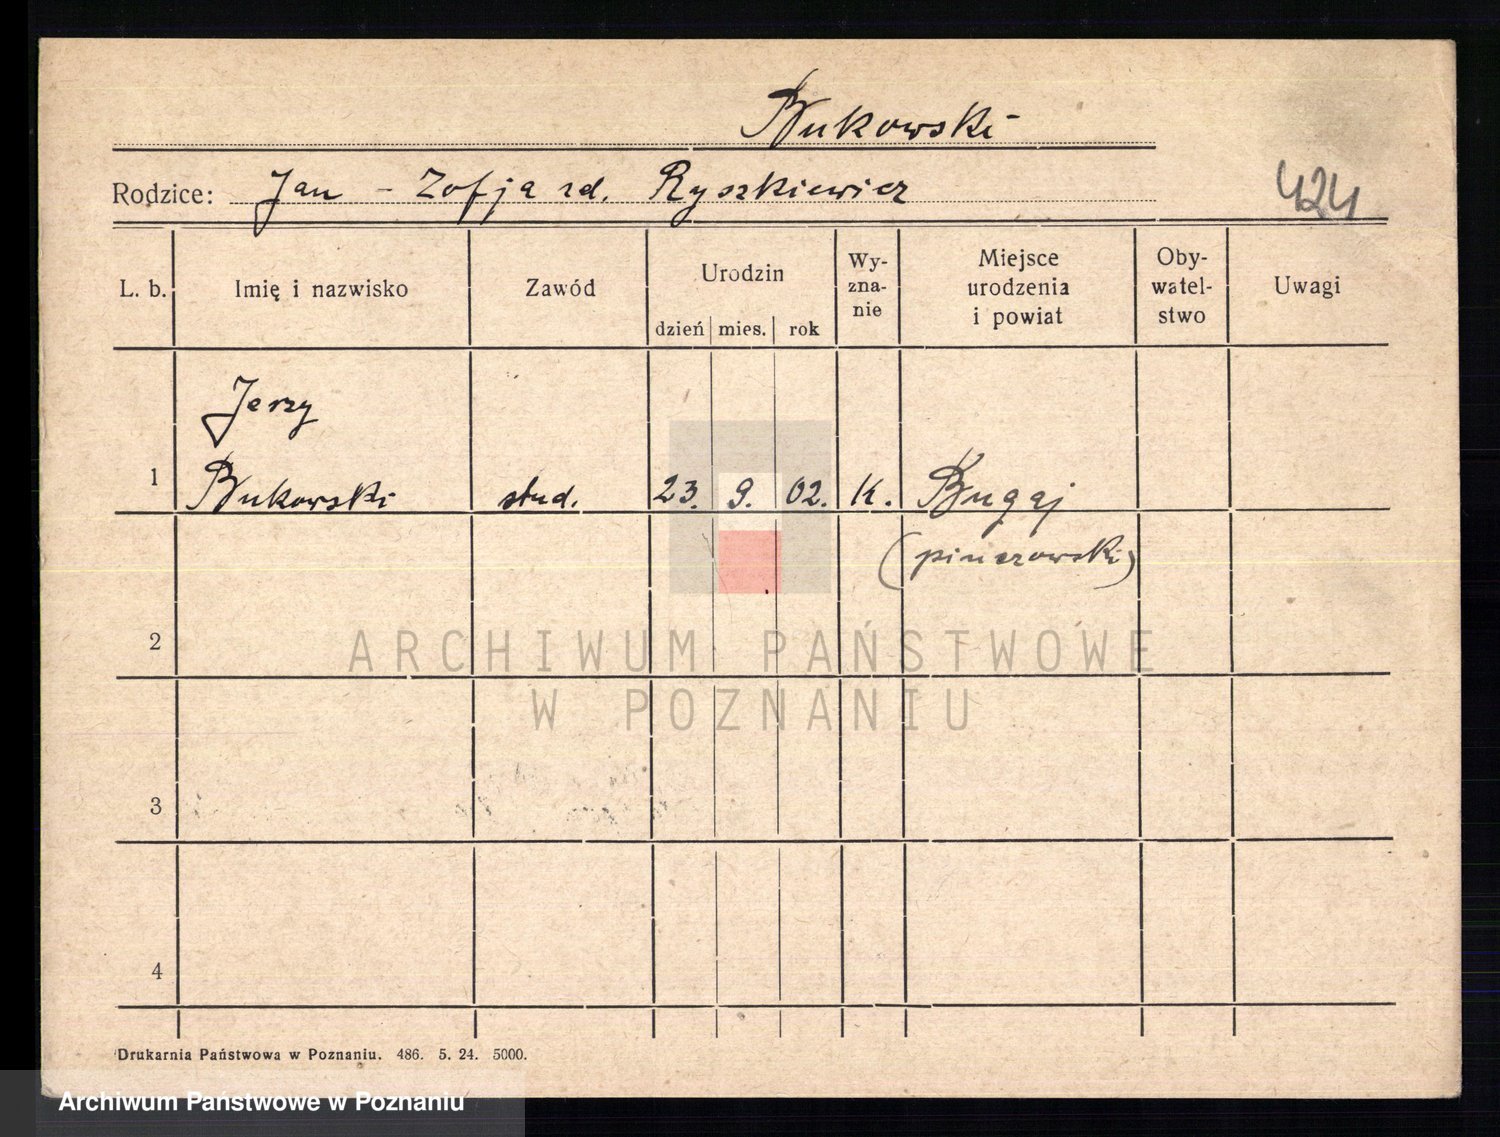 Bukowski
Rodzice: Jan - Zofja zd. Ryszkiewicz
424
L. b. Imię i nazwisko Zawód Urodzin dzień mies. rok Wy-zna-nie Miejsce urodzenia i powiat Oby-watel-stwo Uwagi
Jerzy
1 Bukowski stud. 23. 9. 02. K. Bugaj
(pinczowski)
2
ARCHIWUM PAŃSTWOWE
W POZNANIU
3
4
Drukarnia Państwowa w Poznaniu. 486. 5. 24. 5000.
Archiwum Państwowe w Poznaniu